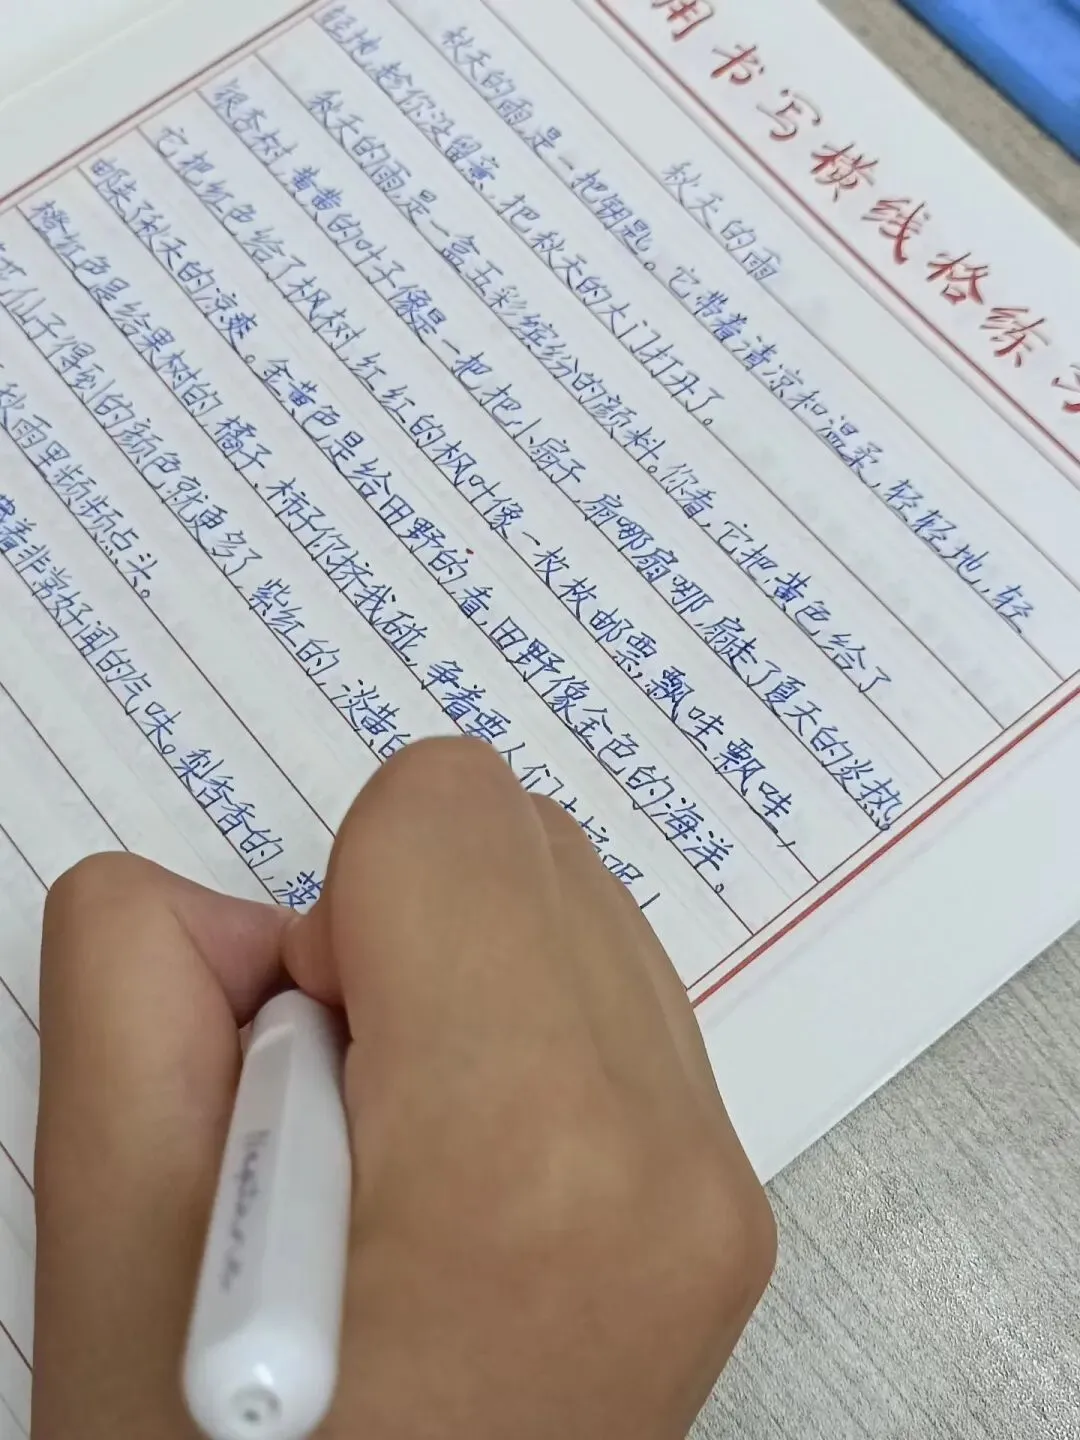 用书写横线格练
秋天的雨
秋天的雨,是一把钥匙。它带着清凉和温柔,轻轻地,轻
轻地,趁你没留意,把秋天的大门打开了。
秋天的雨,是一盒五彩缤纷的颜料。你看,它把黄色给了
银杏树,黄黄的叶子像是一把把小扇子,扇哪扇哪,扇走了夏天的炎热。
它把红色给了枫树,红红的枫叶像一枚枚邮票,飘哇飘哇,
邮来了秋天的凉爽。金黄色是给田野的,看,田野像金色的海洋。
橙红色是给果树的,橘子、柿子你挤我碰,争着要人们
仙子得到的颜色就更多了,紫红的,淡黄的
秋雨里频频点头。
着非常好闻的气味。梨香香的,菠